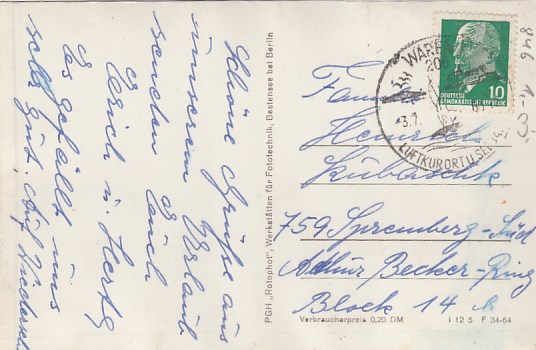 Schöne Grüße aus
unserem Urlaub
senden Euch
Erich u. Herta
Es gefällt uns
sehr gut. Auf Wieders
PGH „Rotophot“, Werkstätten für Fototechnik, Bestensee bei Berlin
WARE
20
3.7.
LUFTKURORT U. SEE
DEUTSCHE
DEMOKRATISCHE REPUBLIK
10
846 1-3.
Fam
Heinrich
759 Spremberg-Süd
Arthur Becker-Ring
Block 14 b
Verbraucherpreis 0,20 DM
I 12 5 F 34-64